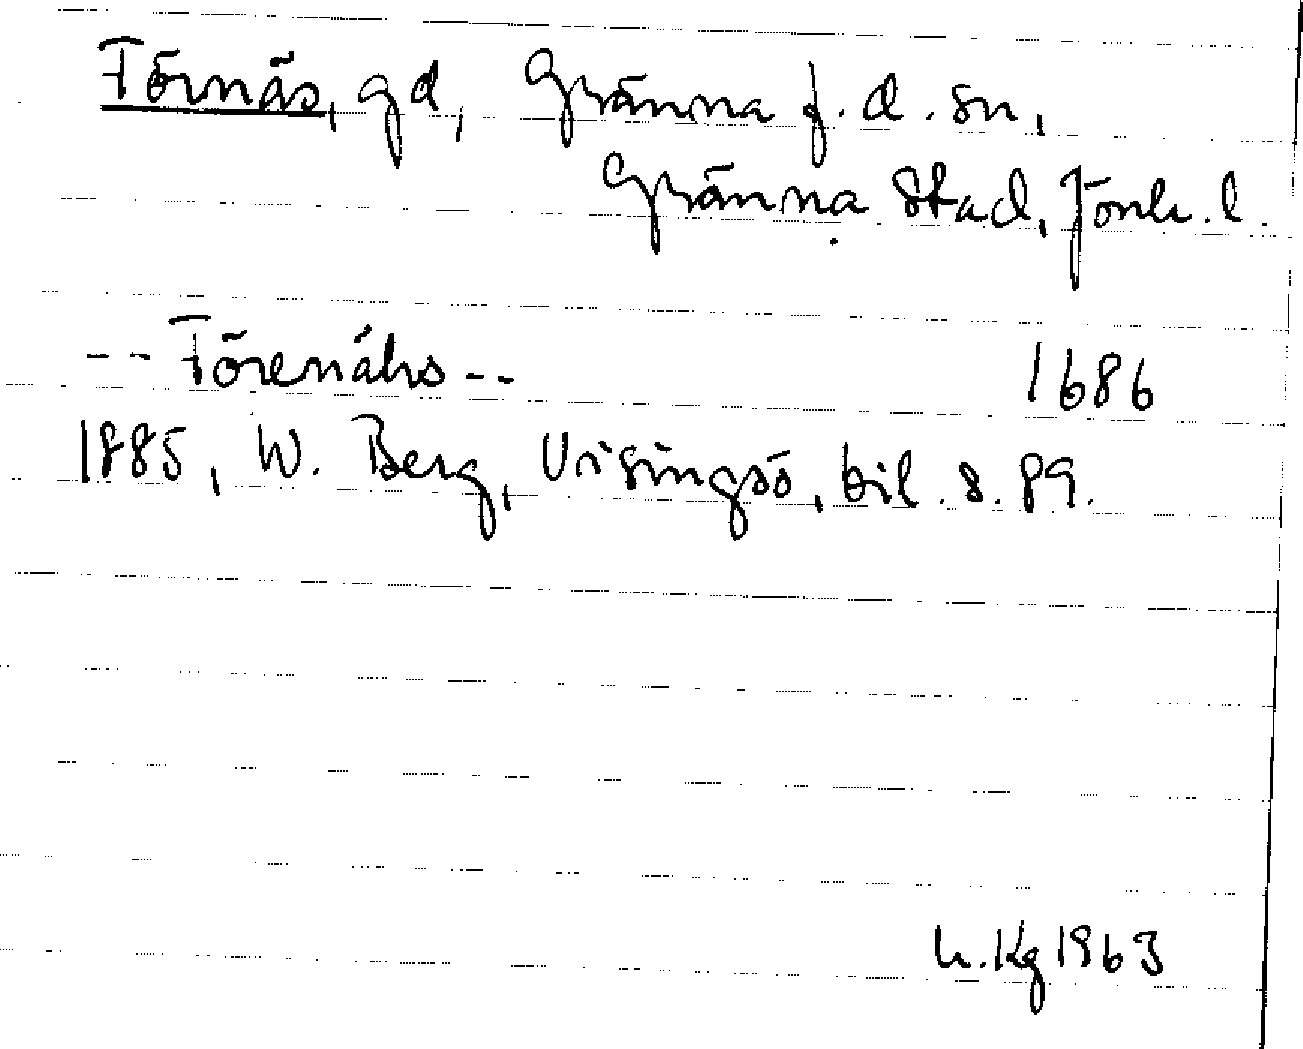 Förnäs, gd, Gränna f.d. sn,
Gränna stad, Jönk. l.
-- Förenähs -- 1686
1885, W. Berg, Visingsö, bil. s. 89.
h. Kg 1963